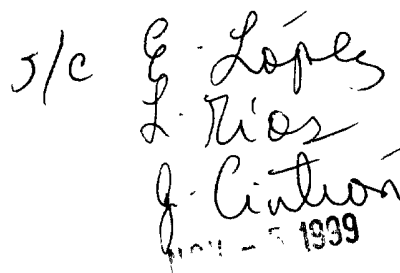 s/c E. López
L. Ríos
J. Cintrón
NOV - 5 1999